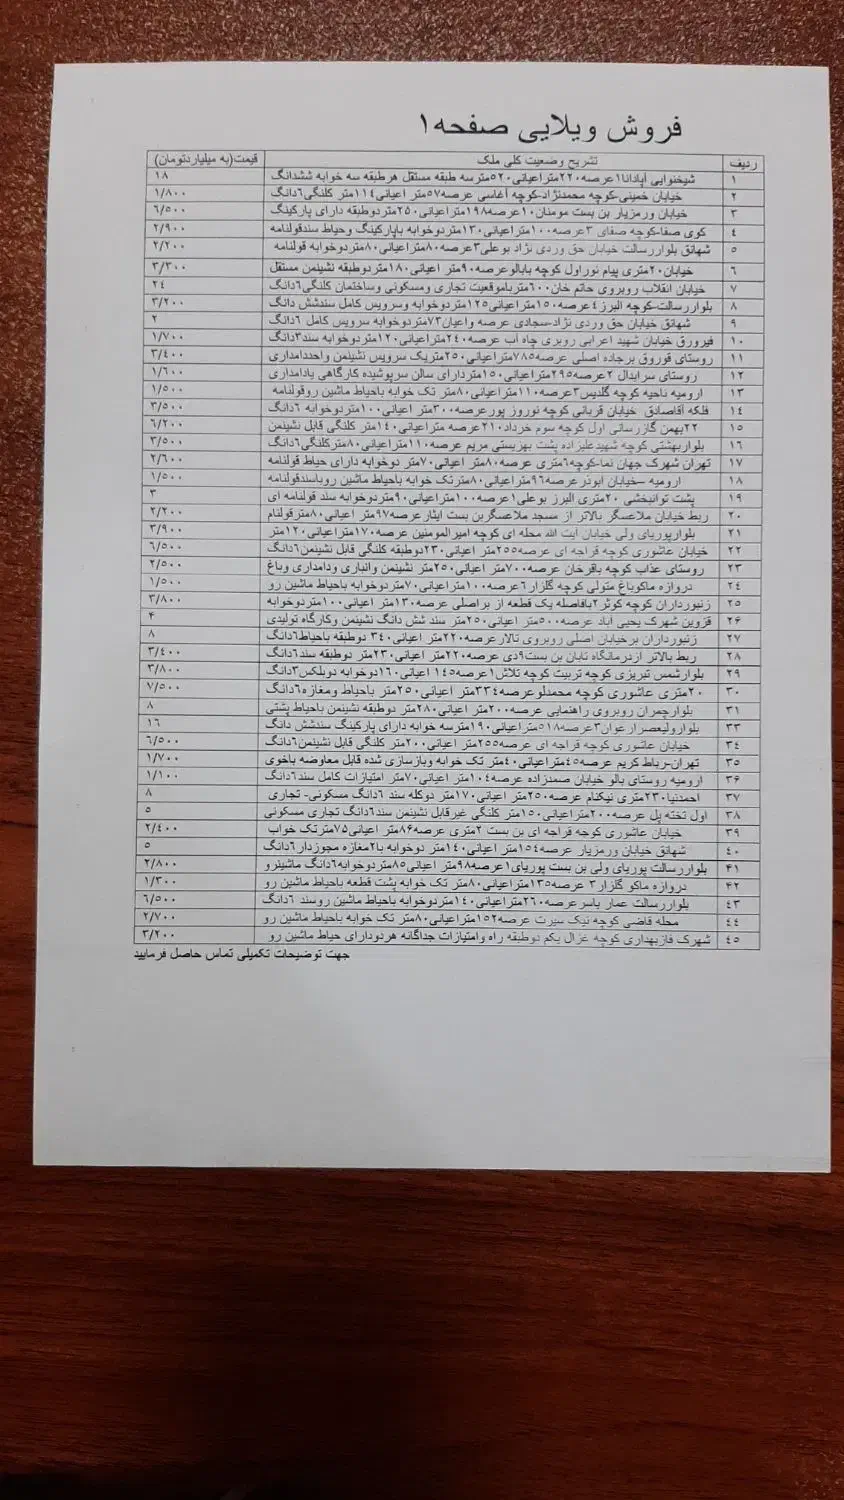 فروش ویلایی صفحه۱
ردیف تشریح وضعیت کلی ملک قیمت(به میلیاردتومان)
۱ شیخنوایی آپادانا۱عرصه۲۲۰متراعیانی۵۲۰مترسه طبقه مستقل هرطبقه سه خوابه ششدانگ ۱۸
۲ خیابان خمینی-کوچه محمدنژاد-کوچه آغاسی عرصه۵۷متر اعیانی۱۱۴متر کلنگی۶دانگ ۱/۸۰۰
۳ خیابان ورمزیار بن بست مومنان۱۰عرصه۱۹۸متراعیانی۲۵۰متردوطبقه دارای پارکینگ ۶/۵۰۰
۴ کوی صفا-کوچه صفای ۳عرصه۱۰۰متراعیانی۱۳۰متردوخوابه باپارکینگ وحیاط سندقولنامه ۲/۹۰۰
۵ شهانق بلواررسالت خیابان حق وردی نژاد بوعلی۳عرصه۸۰متراعیانی۸۰متردوخوابه قولنامه ۲/۲۰۰
۶ خیابان۲۰متری پیام نوراول کوچه بابالوعرصه۹۰متر اعیانی۱۸۰متردوطبقه نشیمن مستقل ۳/۳۰۰
۷ خیابان انقلاب روبروی خاتم خان۶۰۰مترباموقعیت تجاری ومسکونی وساختمان کلنگی۶دانگ ۲۴
۸ بلواررسالت-کوچه البرز۴عرصه۱۵۰متراعیانی۱۲۵متردوخوابه وسرویس کامل سندشش دانگ ۳/۲۰۰
۹ شهانق خیابان حق وردی نژاد-سجادی عرصه واعیان۷۳متردوخوابه سرویس کامل ۶دانگ ۲
۱۰ فیرورق خیابان شهید اعرابی روبری چاه آب عرصه۲۴۰متراعیانی۱۲۰متردوخوابه سند۳دانگ ۱/۷۰۰
۱۱ روستای قوروق برجاده اصلی عرصه۷۸۵متراعیانی۲۵۰متریک سرویس نشیمن واحددامداری ۳/۴۰۰
۱۲ روستای سرابدال ۲عرصه۲۹۵متراعیانی۱۵۰متردارای سالن سرپوشیده کارگاهی یادامداری ۱/۶۰۰
۱۳ ارومیه ناحیه کوچه گلدیس۳عرصه۱۱۰متراعیانی۸۰متر تک خوابه باحیاط ماشین روقولنامه ۱/۵۰۰
۱۴ فلکه آقاصادق خیابان قربانی کوچه نوروز پورعرصه۳۰۰متر اعیانی۱۰۰متردوخوابه ۶دانگ ۳/۵۰۰
۱۵ ۲۲بهمن گازرسانی اول کوچه سوم خرداد۲۱۰عرصه متراعیانی۱۴۰متر کلنگی قابل نشیمن ۶/۲۰۰
۱۶ بلواربهشتی کوچه شهیدعلیزاده پشت بهزیستی مریم عرصه۱۱۰متراعیانی۸۰مترکلنگی۶دانگ ۳/۵۰۰
۱۷ تهران شهرک جهان نما-کوچه۶متری عرصه۸۰متر اعیانی۷۰متر دوخوابه دارای حیاط قولنامه ۲/۶۰۰
۱۸ ارومیه –خیابان ابوذرعرصه۹۶متراعیانی۸۰مترتک خوابه باحیاط ماشین روباسندقولنامه ۱/۵۰۰
۱۹ پشت توانبخشی ۲۰متری البرز بوعلی۱عرصه۱۰۰متراعیانی۹۰متردوخوابه سند قولنامه ای ۳
۲۰ ربط خیابان ملاعسگر بالاتر از مسجد ملاعسگربن بست ایثارعرصه۹۷متر اعیانی۸۰مترقولنام ۲/۲۰۰
۲۱ بلوارپوریای ولی خیابان آیت الله محله ای کوچه امیرالمومنین عرصه۱۷۰متراعیانی۱۲۰متر ۳/۹۰۰
۲۲ خیابان عاشوری کوچه قراجه ای عرصه۲۵۵متر اعیانی۲۳۰دوطبقه کلنگی قابل نشیمن۶دانگ ۶/۵۰۰
۲۳ روستای عذاب کوچه باقرخان عرصه۷۰۰متر اعیانی۲۵۰متر نشیمن وانباری ودامداری وباغ ۲/۵۰۰
۲۴ دروازه ماکوباغ متولی کوچه گلزار۶عرصه۱۰۰متراعیانی۷۰متردوخوابه باحیاط ماشین رو ۱/۵۰۰
۲۵ زنبورداران کوچه کوثر۲بافاصله یک قطعه از براصلی عرصه۱۳۰متر اعیانی۱۰۰متردوخوابه ۳/۸۰۰
۲۶ قزوین شهرک یحیی آباد عرصه۵۰۰متر اعیانی۲۵۰متر سند شش دانگ نشیمن وکارگاه تولیدی ۴
۲۷ زنبورداران برخیابان اصلی روبروی تالارعرصه۲۲۰متر اعیانی۳۴۰ دوطبقه باحیاط۶دانگ ۸
۲۸ ربط بالاتر ازدرمانگاه تابان بن بست۹دی عرصه۲۲۰متر اعیانی۲۳۰متر دوطبقه سند۶دانگ ۳/۴۰۰
۲۹ بلوارشمس تبریزی کوچه تربیت کوچه تلاش۱عرصه۱۴۵ اعیانی۱۶۰دوخوابه دوبلکس۳دانگ ۳/۸۰۰
۳۰ ۲۰متری عاشوری کوچه محمدلوعرصه۳۳۴متر اعیانی۲۵۰متر باحیاط ومغازه۶دانگ ۷/۵۰۰
۳۱ بلوارچمران روبروی راهنمایی عرصه۲۰۰متر اعیانی۲۸۰متر دوطبقه نشیمن باحیاط پشتی ۸
۳۳ بلوارولیعصرارغوان۳عرصه۵۱۸متراعیانی۱۹۰مترسه خوابه دارای پارکینگ سندشش دانگ ۱۶
۳۴ خیابان عاشوری کوچه قراجه ای عرصه۲۵۵متر اعیانی۲۰۰متر کلنگی قابل نشیمن۶دانگ ۶/۵۰۰
۳۵ تهران-رباط کریم عرصه۴۵متراعیانی۴۰متر تک خوابه وبازسازی شده قابل معاوضه باخوی ۱/۷۰۰
۳۶ ارومیه روستای بالو خیابان صمدزاده عرصه۱۰۴متر اعیانی۷۰متر امتیازات کامل سند۶دانگ ۱/۱۰۰
۳۷ احمدنیا۲۳۰متری نیکنام عرصه۲۵۰متر اعیانی۱۷۰متر دوکله سند ۶دانگ مسکونی- تجاری ۸
۳۸ اول تخته پل عرصه۲۰۰متراعیانی۱۵۰متر کلنگی غیرقابل نشیمن سند۶دانگ تجاری مسکونی ۵
۳۹ خیابان عاشوری کوچه قراجه ای بن بست ۲متری عرصه۸۶متر اعیانی۷۵مترتک خواب ۲/۴۰۰
۴۰ شهانق خیابان ورمزیار عرصه۱۵۴متر اعیانی۱۴۰متر دوخوابه با۲مغازه مجوزدار۶دانگ ۵
۴۱ بلواررسالت پوریای ولی بن بست پوریای۱عرصه۹۸متر اعیانی۸۵متردوخوابه۶دانگ ماشینرو ۲/۸۰۰
۴۲ دروازه ماکو گلزار۳ عرصه۱۳۵متراعیانی۸۰متر تک خوابه پشت قطعه باحیاط ماشین رو ۱/۳۰۰
۴۳ بلواررسالت عمار یاسرعرصه۲۶۰متراعیانی۱۴۰متردوخوابه باحیاط ماشین روسند ۶دانگ ۶/۵۰۰
۴۴ محله قاضی کوچه نیک سیرت عرصه۱۵۲متراعیانی۸۰متر تک خوابه باحیاط ماشین رو ۲/۷۰۰
۴۵ شهرک فازبهداری کوچه غزال یکم دوطبقه راه وامتیازات جداگانه هردودارای حیاط ماشین رو ۳/۲۰۰
جهت توضیحات تکمیلی تماس حاصل فرمایید